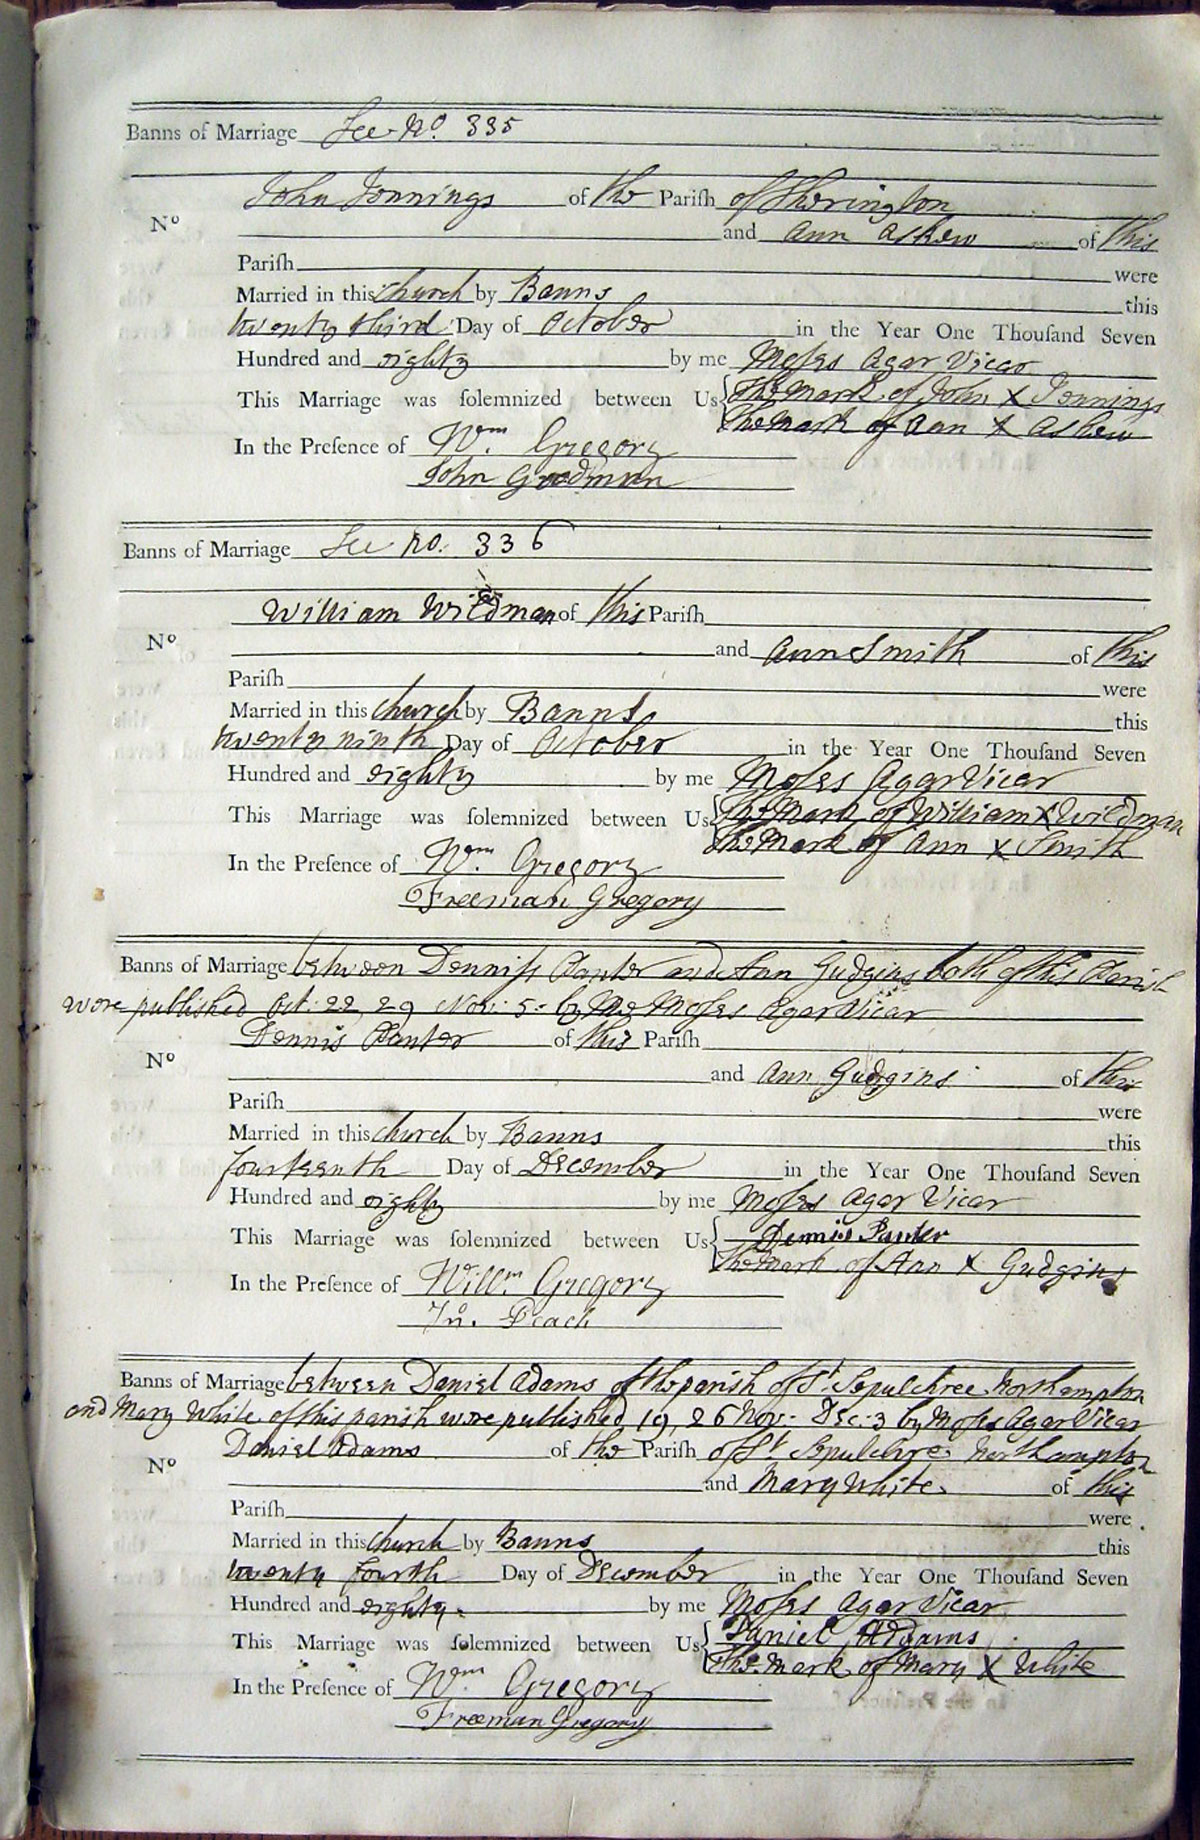 Banns of Marriage See No. 335
John Jennings of the Parish of Sherington
No
and Ann Askew of this
Pariſh were
Married in this Church by Banns this
twenty third Day of October in the Year One Thouſand Seven
Hundred and eighty by me Moſes Agar Vicar
This Marriage was ſolemnized between Us The Mark of John X Jennings
The Mark of Ann X Askew
In the Preſence of Wm. Gregory
John Goodman
Banns of Marriage See no. 336
William Wildman of this Pariſh
No
and Ann Smith of this
Pariſh were
Married in this Church by Banns this
twenty ninth Day of October in the Year One Thouſand Seven
Hundred and eighty by me Moſes Agar Vicar
This Marriage was ſolemnized between Us The Mark of William X Wildman
The Mark of Ann X Smith
In the Preſence of Wm. Gregory
Freeman Gregory
Banns of Marriage between Denniſs Panter and Ann Gudgins both of this Parish
were published Oct. 22 29 Nov. 5 by Me Moſes Agar Vicar
Dennis Panter of this Pariſh
No
and Ann Gudgins of this
Pariſh were
Married in this Church by Banns this
fourteenth Day of December in the Year One Thouſand Seven
Hundred and eighty by me Moſes Agar Vicar
This Marriage was ſolemnized between Us Dennis Panter
The Mark of Ann X Gudgins
In the Preſence of Willm. Gregory
Jno. Peach
Banns of Marriage between Daniel Adams of the parish of St. Sepulchree Northampton
and Mary White of this parish were published 19, 26 Nov. Dec. 3 by Moſes Agar Vicar
Daniel Adams of the Pariſh of St Sepulchre Northampton
No
and Mary White of this
Pariſh were
Married in this Church by Banns this
twenty fourth Day of December in the Year One Thouſand Seven
Hundred and eighty by me Moſes Agar Vicar
This Marriage was ſolemnized between Us Daniel Addams
The Mark of Mary X White
In the Preſence of Wm. Gregory
Freeman Gregory